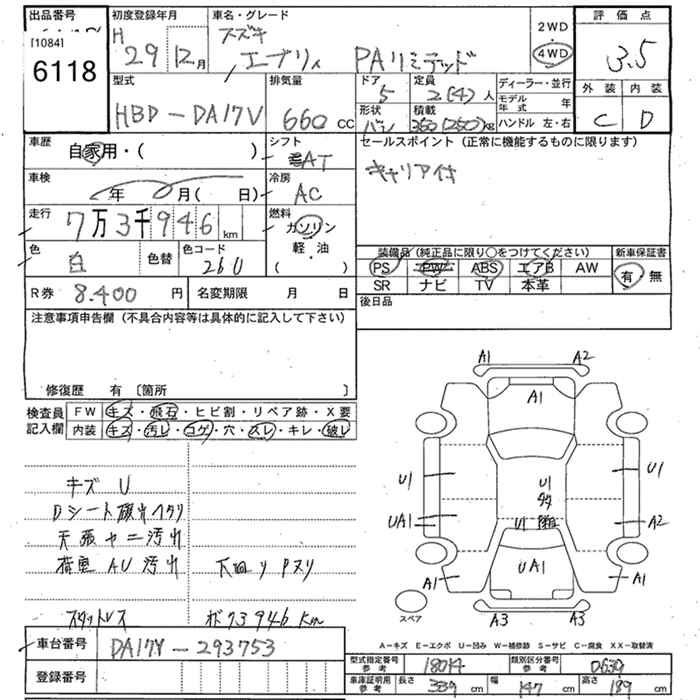 出品番号 初度登録年月 車名・グレード 評価点
[1084] H 29年 12月 スズキ 2WD
6118 エブリィ PAリミテッド 4WD 3.5
型式 排気量 ドア 定員 ディーラー・並行 外装 内装
HBD-DA17V 660cc 5 2(4)人 モデル年式 年
形状 積載 ハンドル 左・右 C D
バン 350(250)kg
車歴 自家用・( ) シフト AT セールスポイント(正常に機能するものに限ります)
車検 年 月( 日) 冷房 AC キャリア付
走行 7万3千946km 燃料 ガソリン
軽・油
( )
色 白 色替 色コード 26U
装備品(純正品に限り○をつけてください) 新車保証書
PS PW ABS エアB AW 有・無
SR ナビ TV 本革
R券 8.400円 名変期限 月 日 後日品
注意事項申告欄(不具合内容等は具体的に記入して下さい)
修復歴 有 〔箇所 〕
検査員記入欄 FW キズ・飛石・ヒビ割・リペア跡・X要
内装 キズ・汚レ・コゲ・穴・スレ・キレ・破レ
A1 A2
A1
キズ U
U1 U1 U1
Dシート
UA1 U1 A2
天張 ヤニ汚れ
荷室 AU 汚れ 下回り Pヌリ
A1 UA1 A1
スペア
A3 A3
スタットレス ボ73946km
車台番号 DA17V-293753
登録番号
A-キズ E-エクボ U-凹み W-補修跡 S-サビ C-腐食 XX-取替済
型式指定番号 参考 18014 類別区分番号 参考 0639
車庫証明用 参考 長さ 339cm 幅 147cm 高さ 189cm